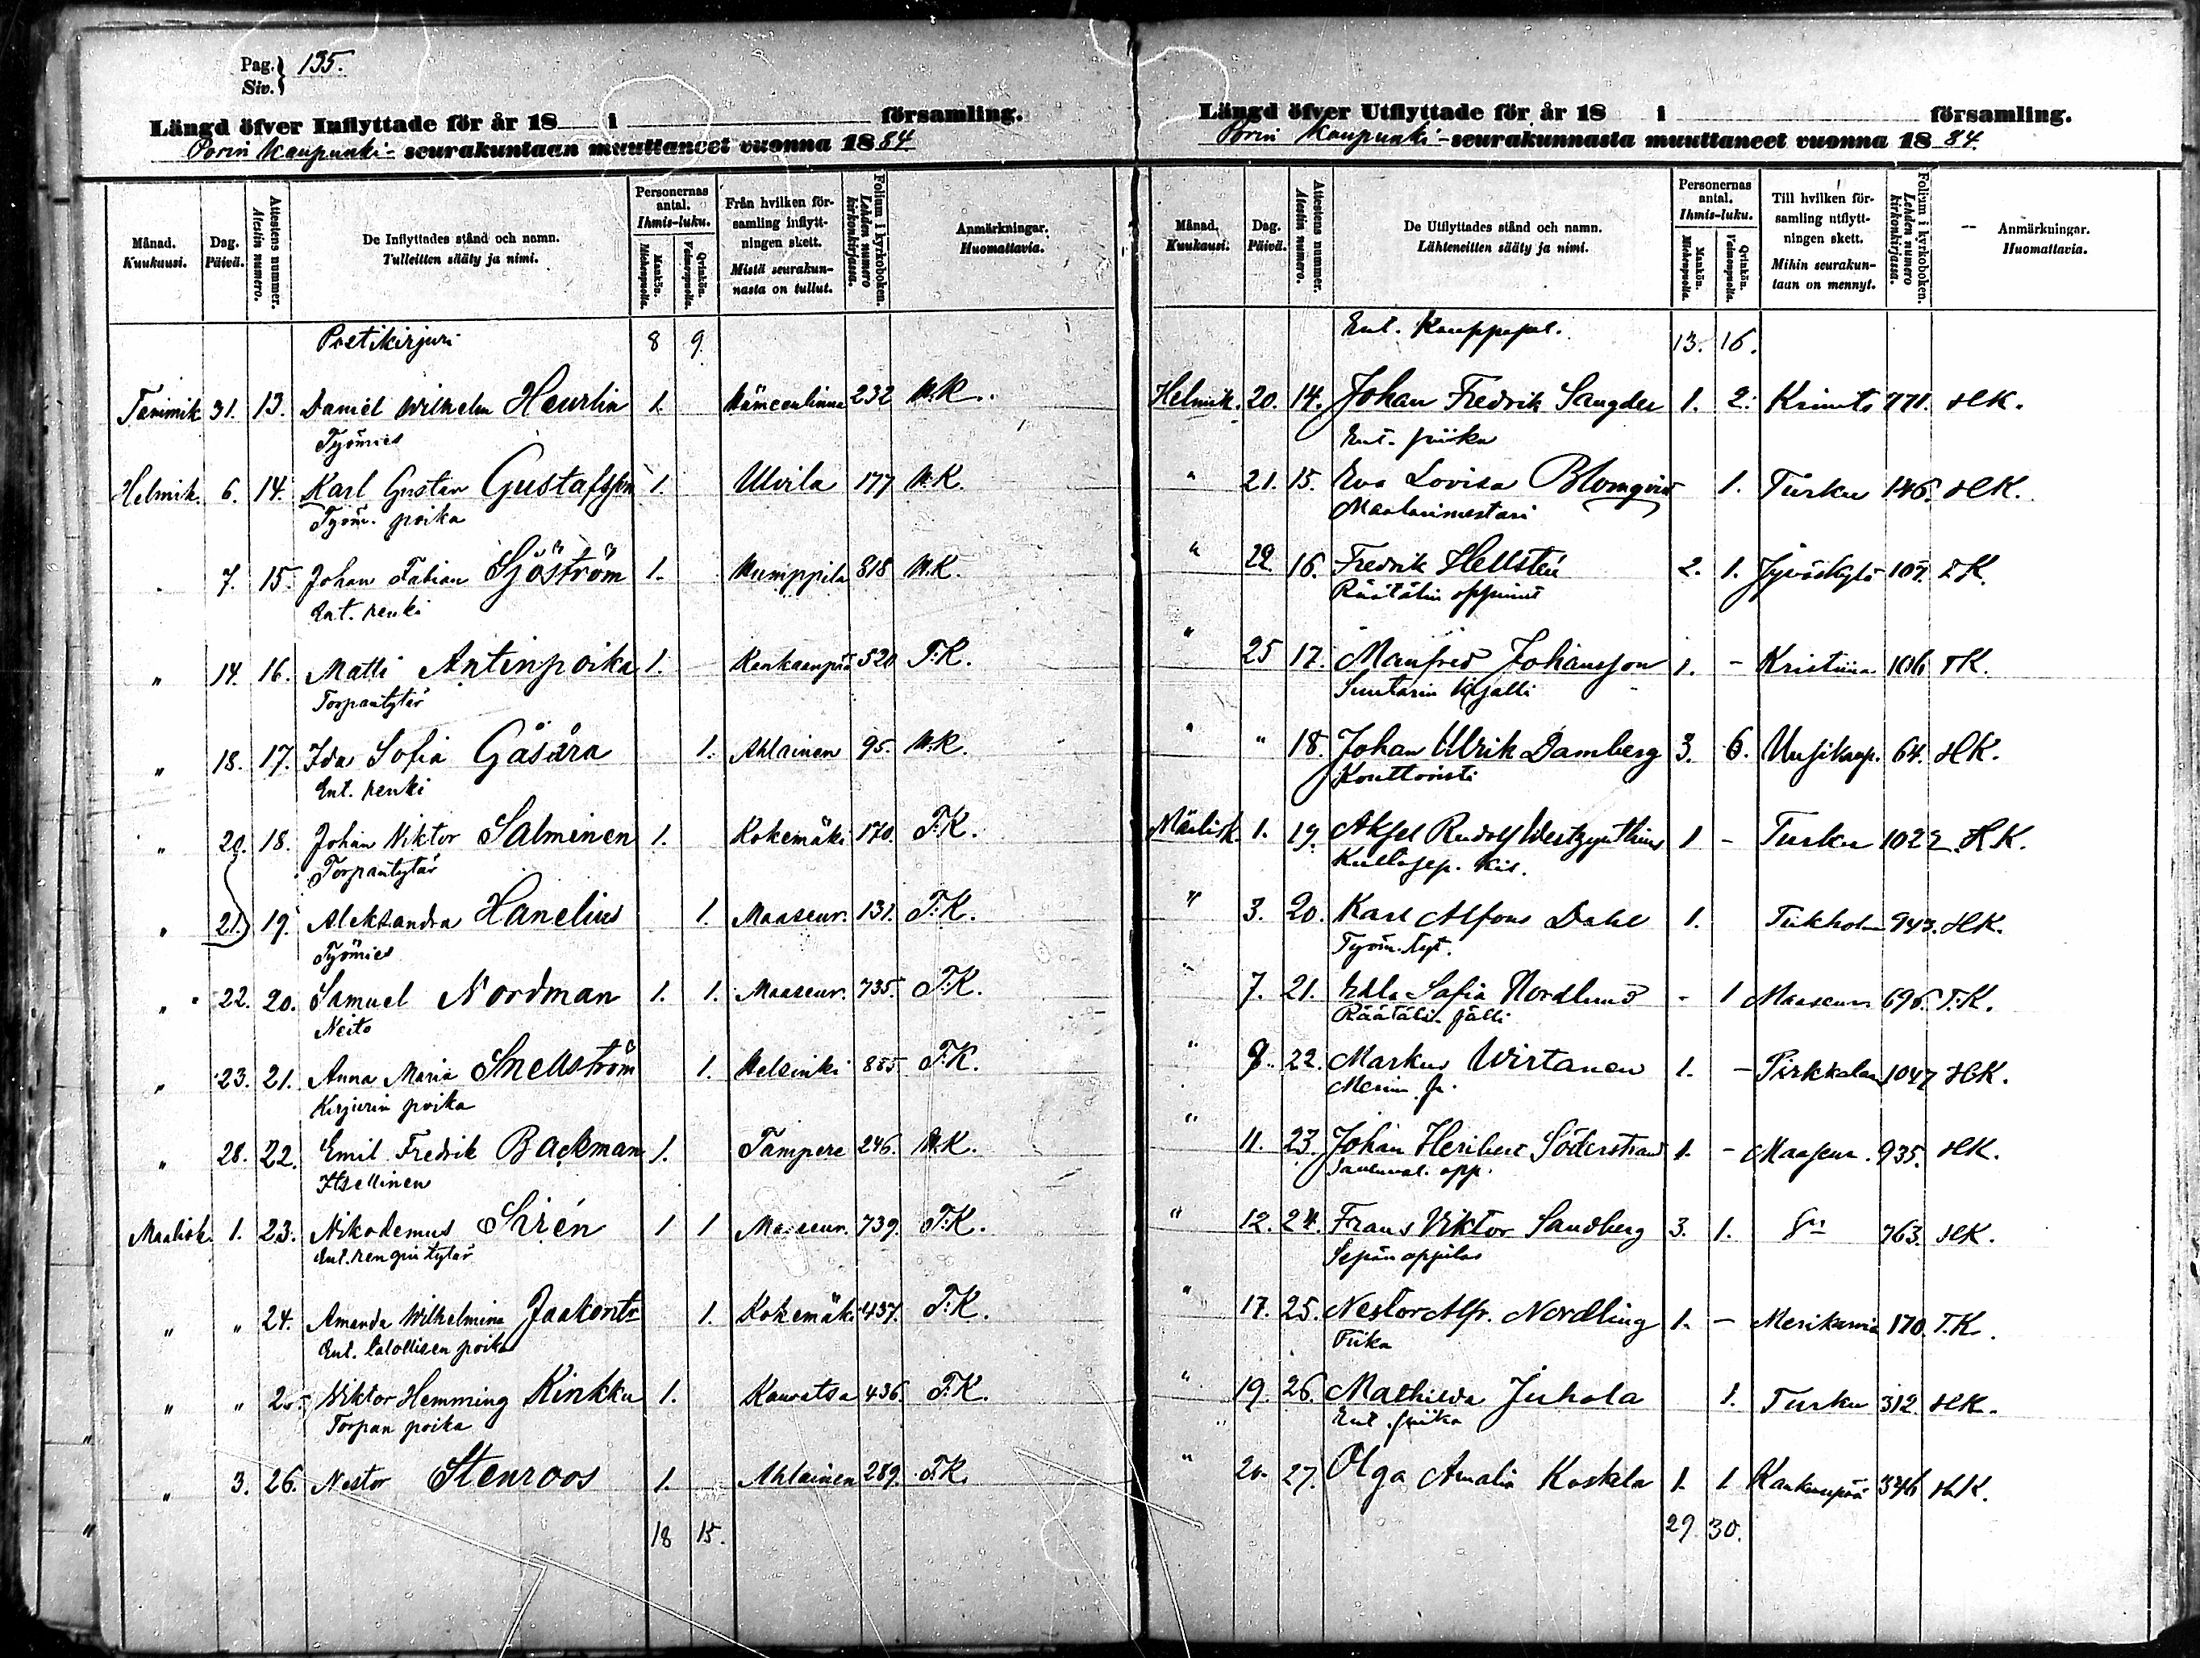 Pag. Siv. 135.
Längd öfver Inflyttade för år 18 i församling.
Porin Kaupunki-seurakuntaan muuttaneet vuonna 1884
Månad. Kuukausi.
Dag. Päivä.
Attestens nummer. Atestin numero.
De Inflyttades stånd och namn. Tulleitten sääty ja nimi.
Personernas antal. Ihmis-luku.
Mankön. Miehenpuolia.
Qvinkön. Vaimonpuolia.
Från hvilken församling inflyttningen skett. Mistä seurakunnasta on tullut.
Folium i kyrkoboken. Lehden numero kirkonkirjassa.
Anmärkningar. Huomattavia.
Postikirjuri 8 9.
Tammik 31. 13. Daniel Wilhelm Heurlin 1. Hämeenlinna 232 H.K.
Työmies
Helmik. 6. 14. Karl Gustav Gustafsson 1. Ulvila 177 H.K.
Työm. poika
" 7. 15. Johan Fabian Sjöström 1. Humppila 818 H.K.
Ent. renki
" 14. 16. Matti Antinpoika 1. Kankaanpää 520 T.K.
Torpantytär
" 18. 17. Ida Sofia Gåsåra 1. Ahlainen 95. H.K.
Ent. renki
" 20. 18. Johan Viktor Salminen 1. Kokemäki 170. T.K.
Torpantytär
" 21. 19. Aleksandra Hanelius 1. Maaseur. 131. T.K.
Työmies
" 22. 20. Samuel Nordman 1. 1. Maaseur. 735. T.K.
Neito
" 23. 21. Anna Maria Snellström 1. Helsinki 885 T.K.
Kirjurin poika
" 28. 22. Emil Fredrik Backman 1. Tampere 246. H.K.
Itsellinen
Maalisk. 1. 23. Nikodemus Sirén 1 1 Maaseur. 739. T.K.
Ent. rengin tytär
" " 24. Amanda Wilhelmina Jaakontr 1. Kokemäki 437. T.K.
Ent. talollisen poika
" " 25 Viktor Hemming Kinkku 1. Kauvatsa 436. T.K.
Torpan poika
" 3. 26. Nestor Stenroos 1. Ahlainen 289. T.K.
18 15.
Längd öfver Utflyttade för år 18 i församling.
Porin Kaupunki-seurakunnasta muuttaneet vuonna 1884.
Månad. Kuukausi.
Dag. Päivä.
Attestens nummer. Atestin numero.
De Utflyttades stånd och namn. Lähteneitten sääty ja nimi.
Personernas antal. Ihmis-luku.
Mankön. Miehenpuolia.
Qvinkön. Vaimonpuolia.
Till hvilken församling utflyttningen skett. Mihin seurakuntaan on mennyt.
Folium i kyrkoboken. Lehden numero kirkonkirjassa.
Anmärkningar. Huomattavia.
Ent. Kauppapal. 13. 16.
Helmik. 20. 14. Johan Fredrik Sangder 1. 2. 771. H.K.
Ent. piika
" 21. 15. Eva Lovisa Blomqvist 1. Turku 146. H.K.
Maalarimestari
" 22. 16. Fredrik Hellstén 2. 1. Jyväskylä 109. T.K.
Räätälin oppinut
" 25 17. Manfred Johansson 1. - Kristiina 106 T.K.
Suutarin kisälli
" " 18. Johan Ulrik Damberg 3. 6. Uusikaup. 64. H.K.
Konttoristi
Maalisk. 1. 19. Aksel Rudolf Westzynthius 1 - Turku 1022. H.K.
Kultasep. kis.
" 3. 20. Karl Alfons Dahl 1. Tukholm 943. H.K.
Työm. tyt.
" 7. 21. Edla Sofia Nordlund - 1 Maaseur 696. T.K.
Räätäli. sälli
" 8. 22. Markus Wirtanen 1. - Pirkkala 1047 H.K.
Merim. p.
" 11. 23. Johan Heribert Söderstrand 1. - Maaseur. 935. H.K.
opp.
" 12. 24. Frans Viktor Sandberg 3. 1. 763. H.K.
Sepän oppilas
" 17. 25. Nestor Alfr. Nordling 1. - Merikarvia 170. T.K.
Piika
" 19. 26. Mathilda Juhola 1. Turku 312. H.K.
Ent. piika
" 20. 27. Olga Amalia Koskela 1. 1 Kankaanpää 346 H.K.
29. 30.